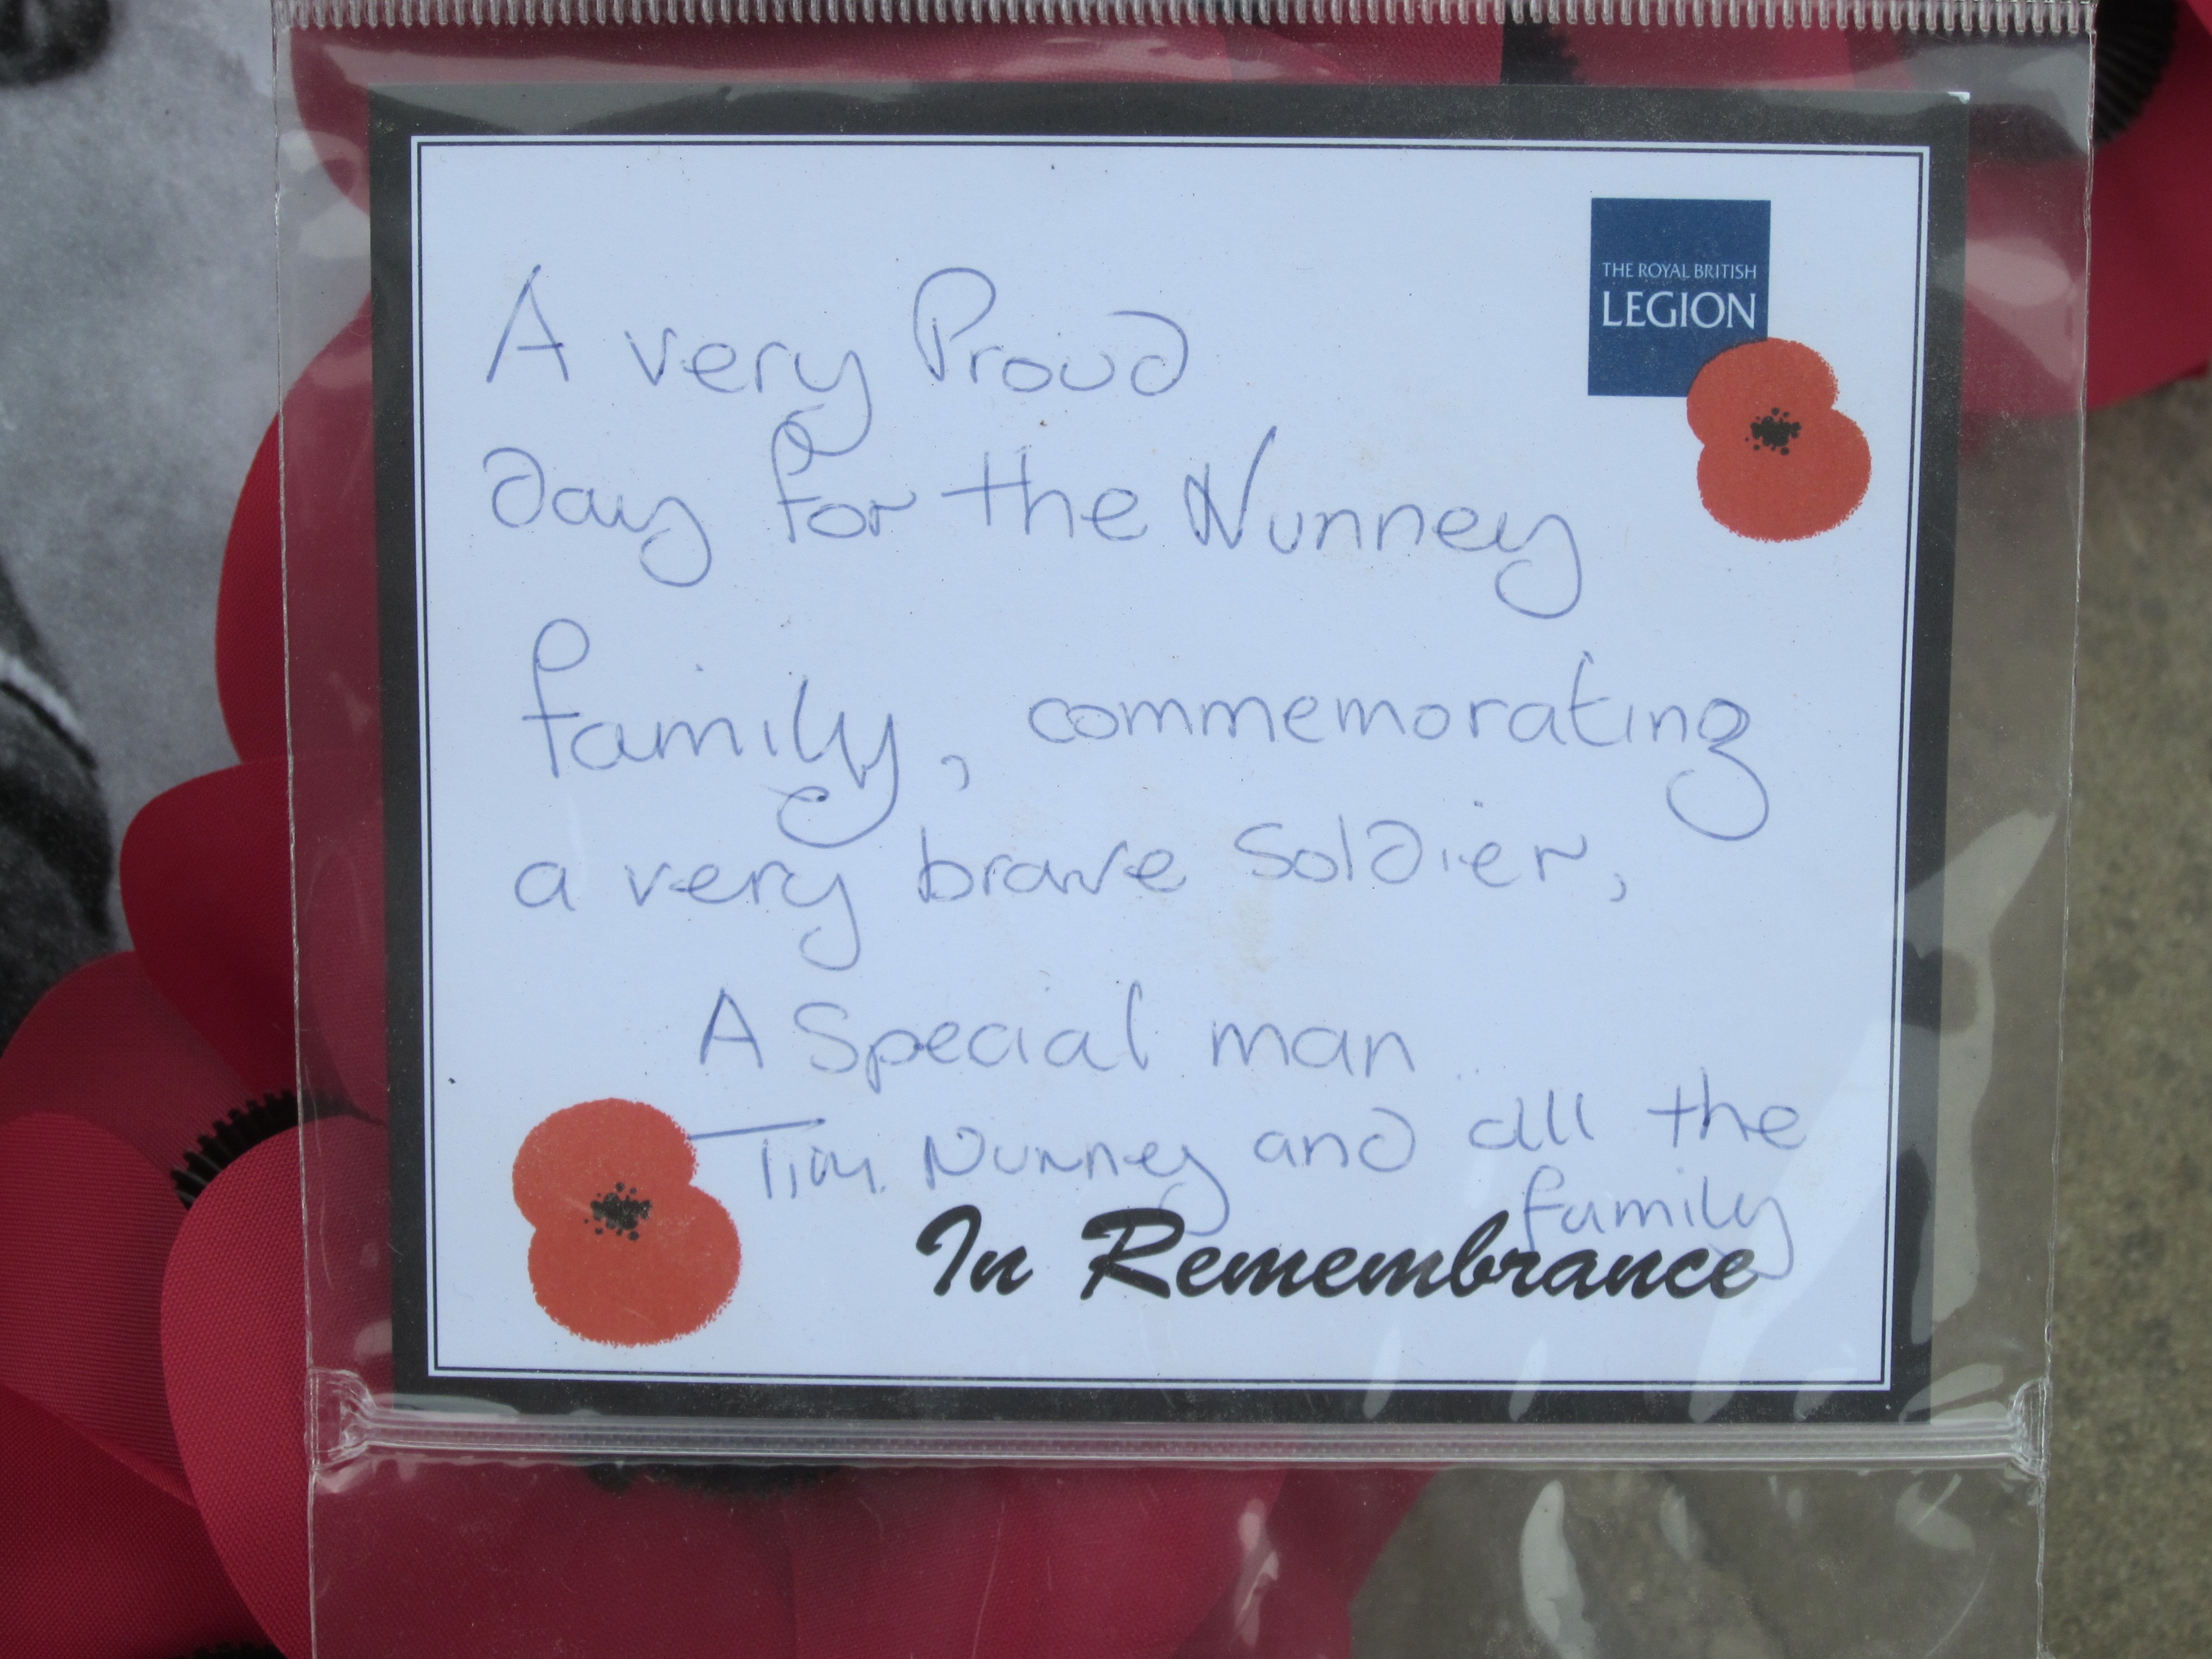 THE ROYAL BRITISH
LEGION
A very Proud
day for the Nunney
family, commemorating
a very brave Soldier,
A Special man
Tim Nunney and all the
family
In Remembrance